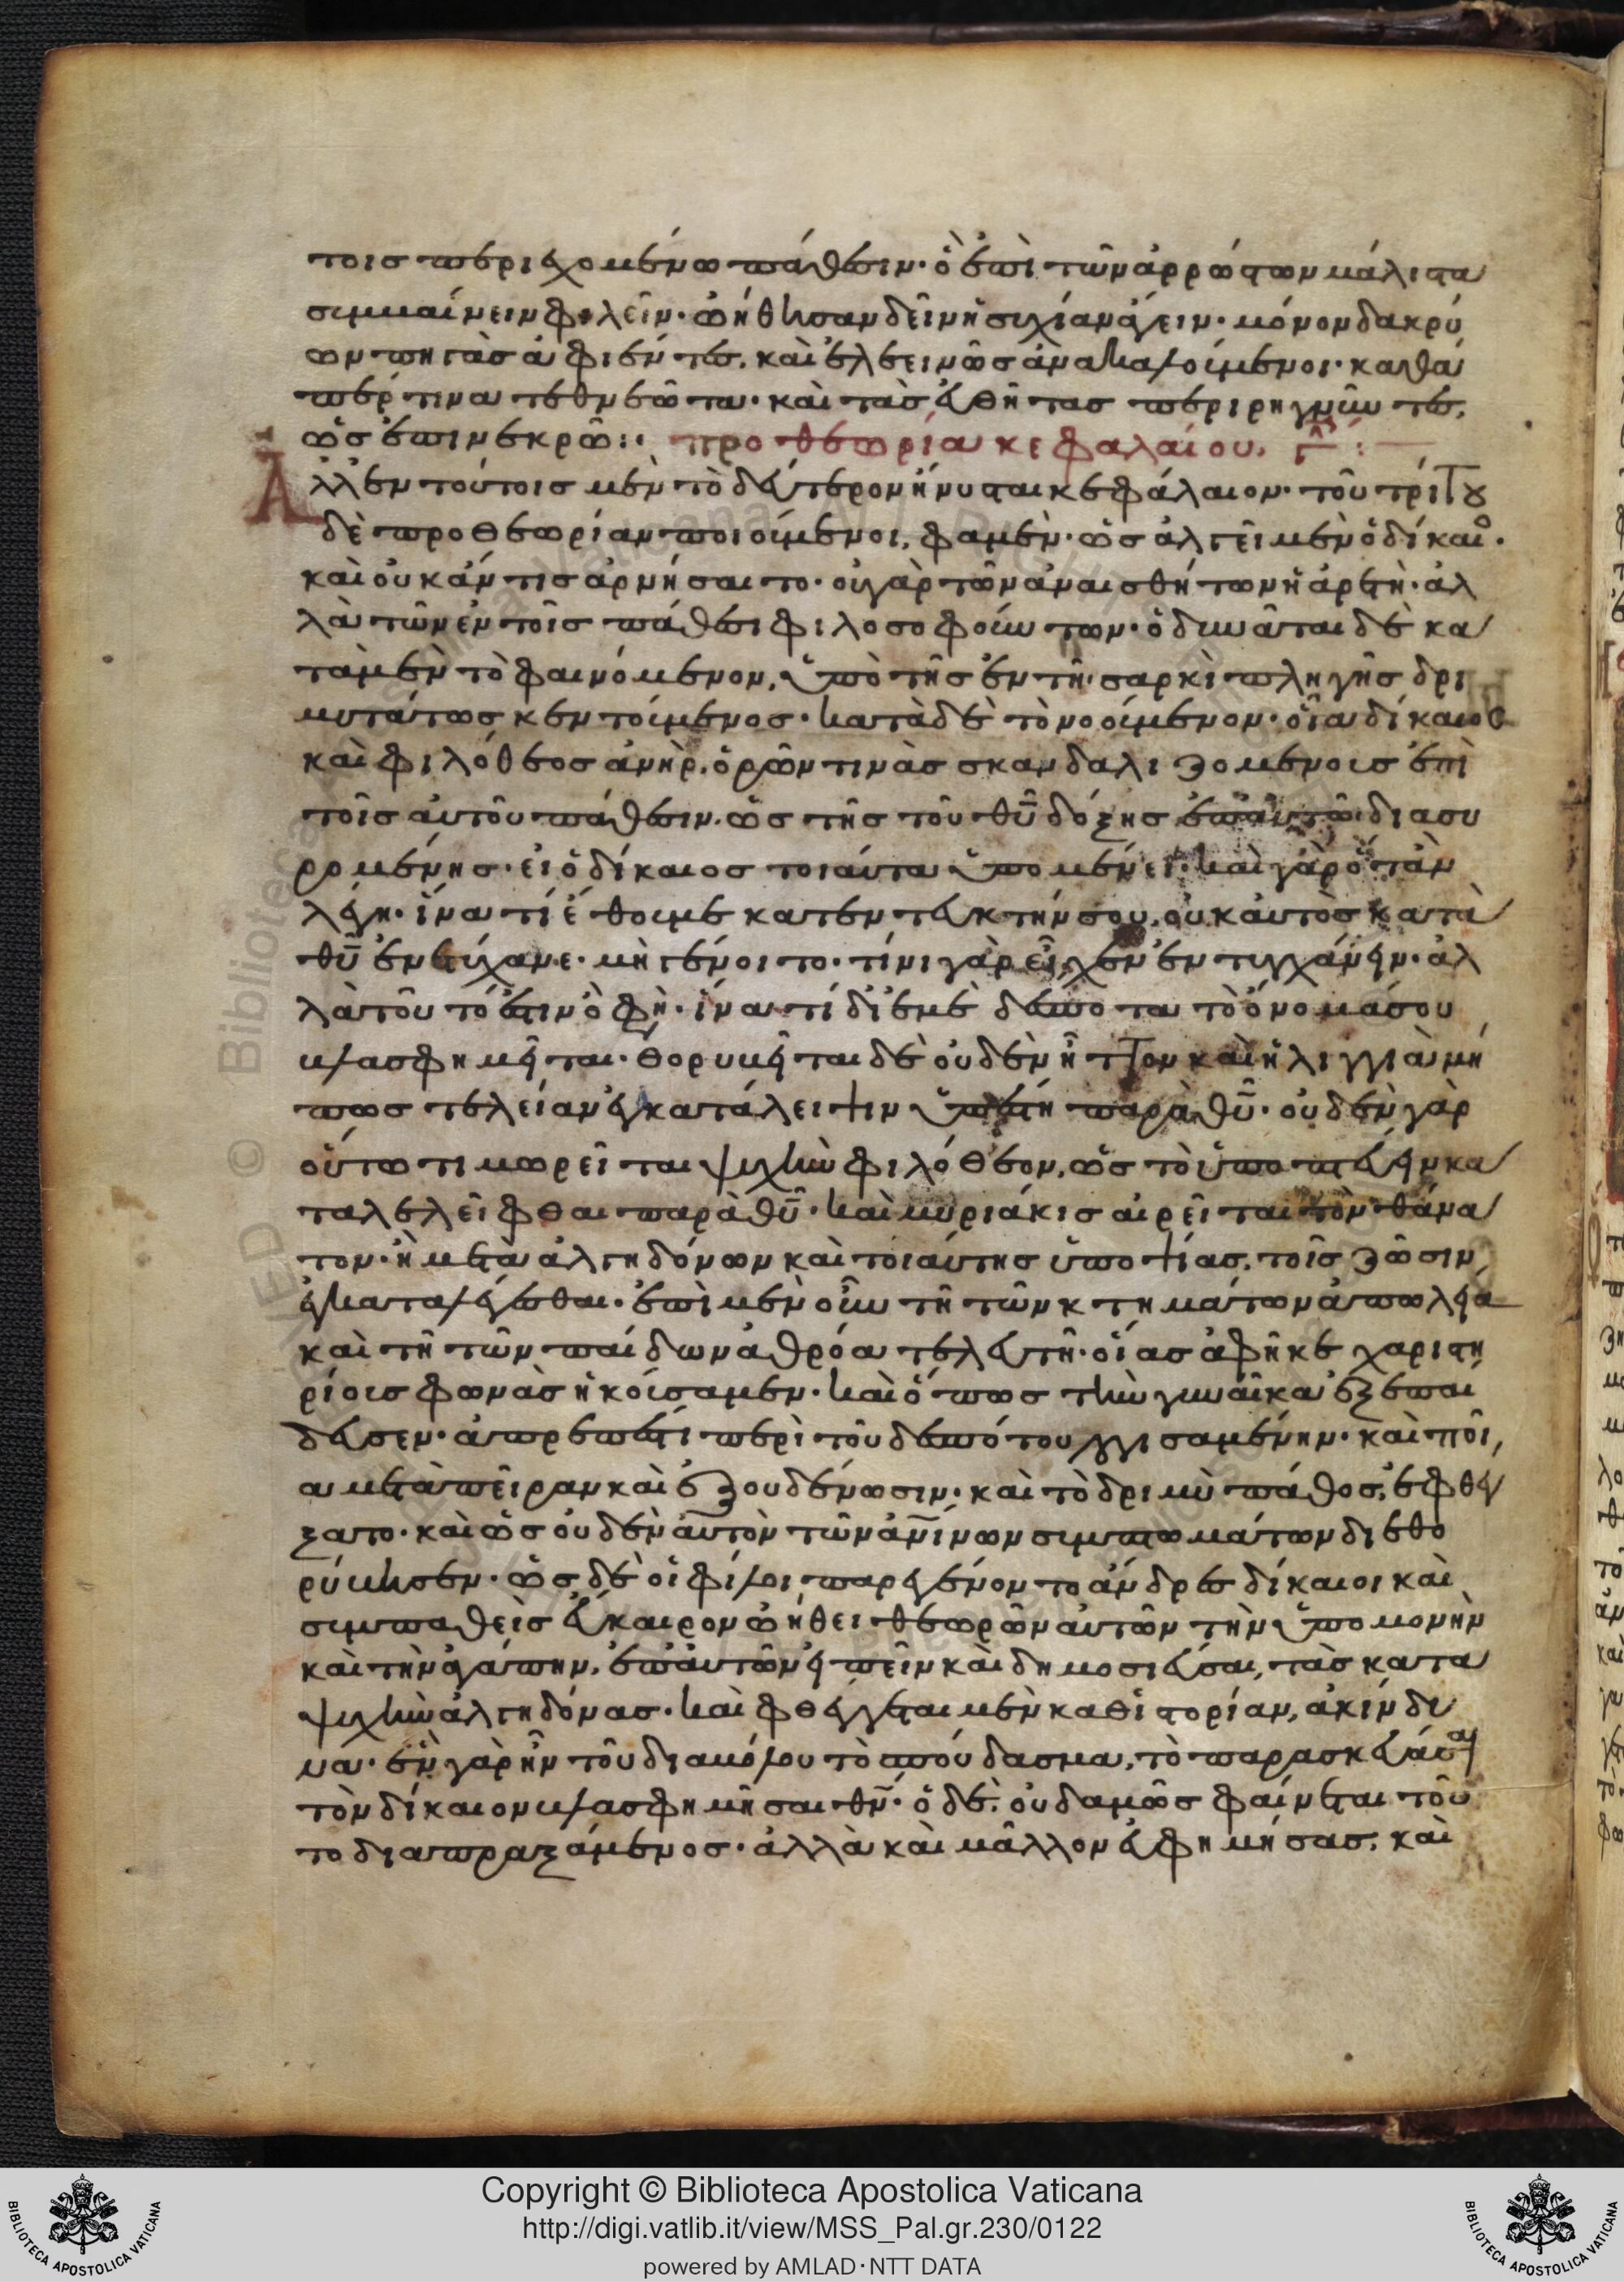 τοις περιεχομένω πάθεσιν· ὃ ἐπὶ τῶν ἀρρώστων μάλιστα
συμβαίνειν φιλεῖν· ὠήθησαν δεῖν ἡσυχίαν ἄγειν· μόνον δακρύ
ων πηγὰς ἀφιέντες, καὶ ἐλεεινῶς ἀνακαλούμενοι· καθά
περ τινα τεθνεῶτα· καὶ τὰς ἐσθῆτας περιρηγνῦντες,
ὡς ἐπι νεκρῶ:· προθεωρία κεφαλαίου, γ^ου:
Ἀλλ ἐν τούτοις μὲν τὸ δεύτερον ἤνυσται κεφάλαιον· τοῦ τρίτου
δὲ προθεωρίαν ποιούμενοι, φαμὲν· ὡς ἀλγεῖ μὲν ὁ δίκαιος·
καὶ οὐκ ἄν τις ἀρνήσαιτο· οὐ γὰρ τῶν ἀναισθήτων ἡ ἀρετὴ· ἀλ
λὰ τῶν ἐν τοῖς πάθεσι φιλοσοφούντων· ὀδυνᾶται δὲ κα
τὰ μὲν τὸ φαινόμενον, ὑπὸ τῆς ἐν τῇ σαρκὶ πληγῆς δρι
μυτάτως κεντούμενος· κατὰ δὲ τὸ νοούμενον· οἷα δίκαιος
καὶ φιλόθεος ἀνὴρ, ὁρῶν τινὰς σκανδαλιζομένοις ἐπὶ
τοῖς αὐτοῦ πάθεσιν· ὡς τῆς τοῦ θυ δόξης ἐπ αὐτῶ διασυ
ρομένης· εἰ ὁ δίκαιος τοιαῦτα ὑπομένει· καὶ γὰρ ὅταν
λέγη· ἵνα τί ἔθου με κατεντευκτήν σου, οὐκ αὐτὸς κατὰ
θυ ἐντύχανε· μὴ γένοιτο· τίνι γὰρ εἶχεν ἐντυγχάνειν· ἀλ
λὰ τοῦτό ἐστιν ὃ φὴ· ἵνα τί δι ἐμὲ δέσποτα τὸ ὄνομά σου
βλασφημεῖται· θορυβεῖται δὲ οὐδὲν ἧττον καὶ ἠλιγγιᾶ μή
πως τελείαν ἐγκατάλειψιν ὑποστῆ παρὰ θυ· οὐδὲν γὰρ
οὕτω τιμωρεῖται ψυχὴν φιλόθεον, ὡς τὸ ὑποπτεύειν κα
ταλελεῖφθαι παρὰ θυ· καὶ μυριάκις αἱρεῖται τὸν θάνα
τον· ἢ μετὰ ἀλγηδόνων καὶ τοιαύτης ὑποψίας, τοῖς ζῶσιν
ἐγκαταλέγεσθαι· ἐπὶ μὲν οὖν τῆ τῶν κτημάτων ἀπωλεία
καὶ τῆ τῶν παίδων ἀθρόα τελευτῆ· οἵας ἀφῆκε χαριστη
ρίοις φωνὰς ἠκούσαμεν· καὶ ὅπως τὴν γυναῖκα ἐξεπαί
δευσεν· ἀπρεπές τι περὶ τοῦ δεσπότου λογισαμένην· καὶ ποῖ
α μετὰ πεῖραν καὶ ἐξουδένωσιν· καὶ τὸ δριμὺ πάθος, ἐφθέγ
ξατο· καὶ ὡς οὐδὲν αὐτὸν τῶν ανίνων συμπτωμάτων διεθο
ρύβησεν· ὡς δὲ οἱ φίλοι παρεγένοντο ἄνδρες δίκαιοι καὶ
συμπαθεῖς εὔκαιρον ὠήθει θεωρῶν αὐτῶν τὴν ὑπομονὴν
καὶ τὴν ἀγάπην, ἐπ αὐτῶν εἰπεῖν καὶ δημοσιεῦσαι, τὰς κατα
ψυχὴν ἀλγηδόνας· καὶ φθέγγεται μὲν καθ ἱστορίαν, ἀκίνδυ
να· ἓν γὰρ ἦν τοῦ διαβόλου τὸ σπούδασμα, τὸ παρασκευάσαι
τὸν δίκαιον βλασφημῆσαι θν· ὁ δὲ, οὐδαμῶς φαίνεται τοῦ
το διαπραξάμενος· ἀλλὰ καὶ μᾶλλον εὐφημήσας, καὶ
Copyright © Biblioteca Apostolica Vaticana
http://digi.vatlib.it/view/MSS_Pal.gr.230/0122
powered by AMLAD·NTT DATA
BIBLIOTECA APOSTOLICA VATICANA
BIBLIOTECA APOSTOLICA VATICANA